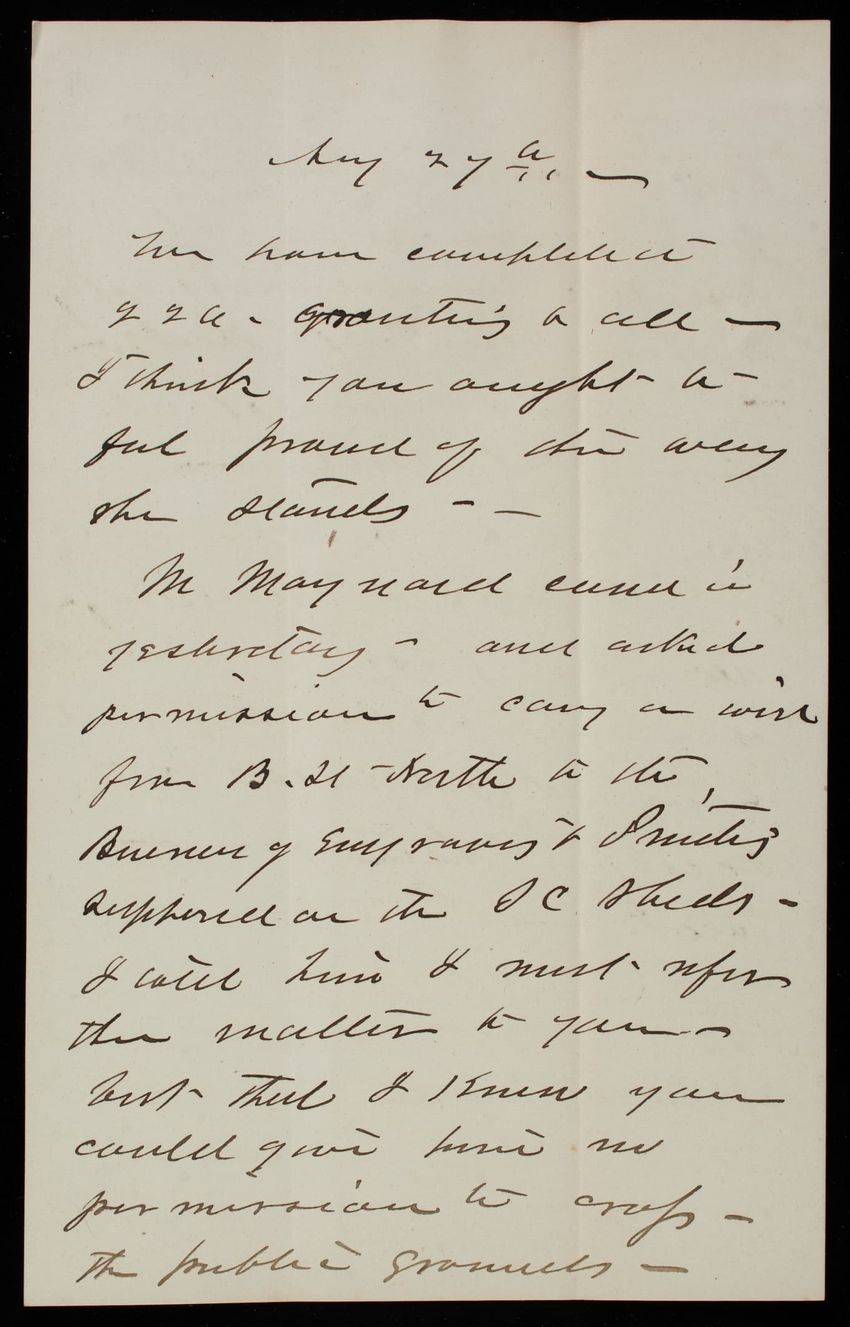 Aug 27th. —
We have completed
22a - grouting & all —
I think you ought to
feel proud of the way
she stands - —
Mr Maynard came in
yesterday - and asked
permission to carry a wire
from B. St North to the
Bureau of Engraving & Printing
supported on the S C. Sheds -
I told him I must refer
the matter to you —
but that I knew you
could give him no
permission to cross -
the public grounds —